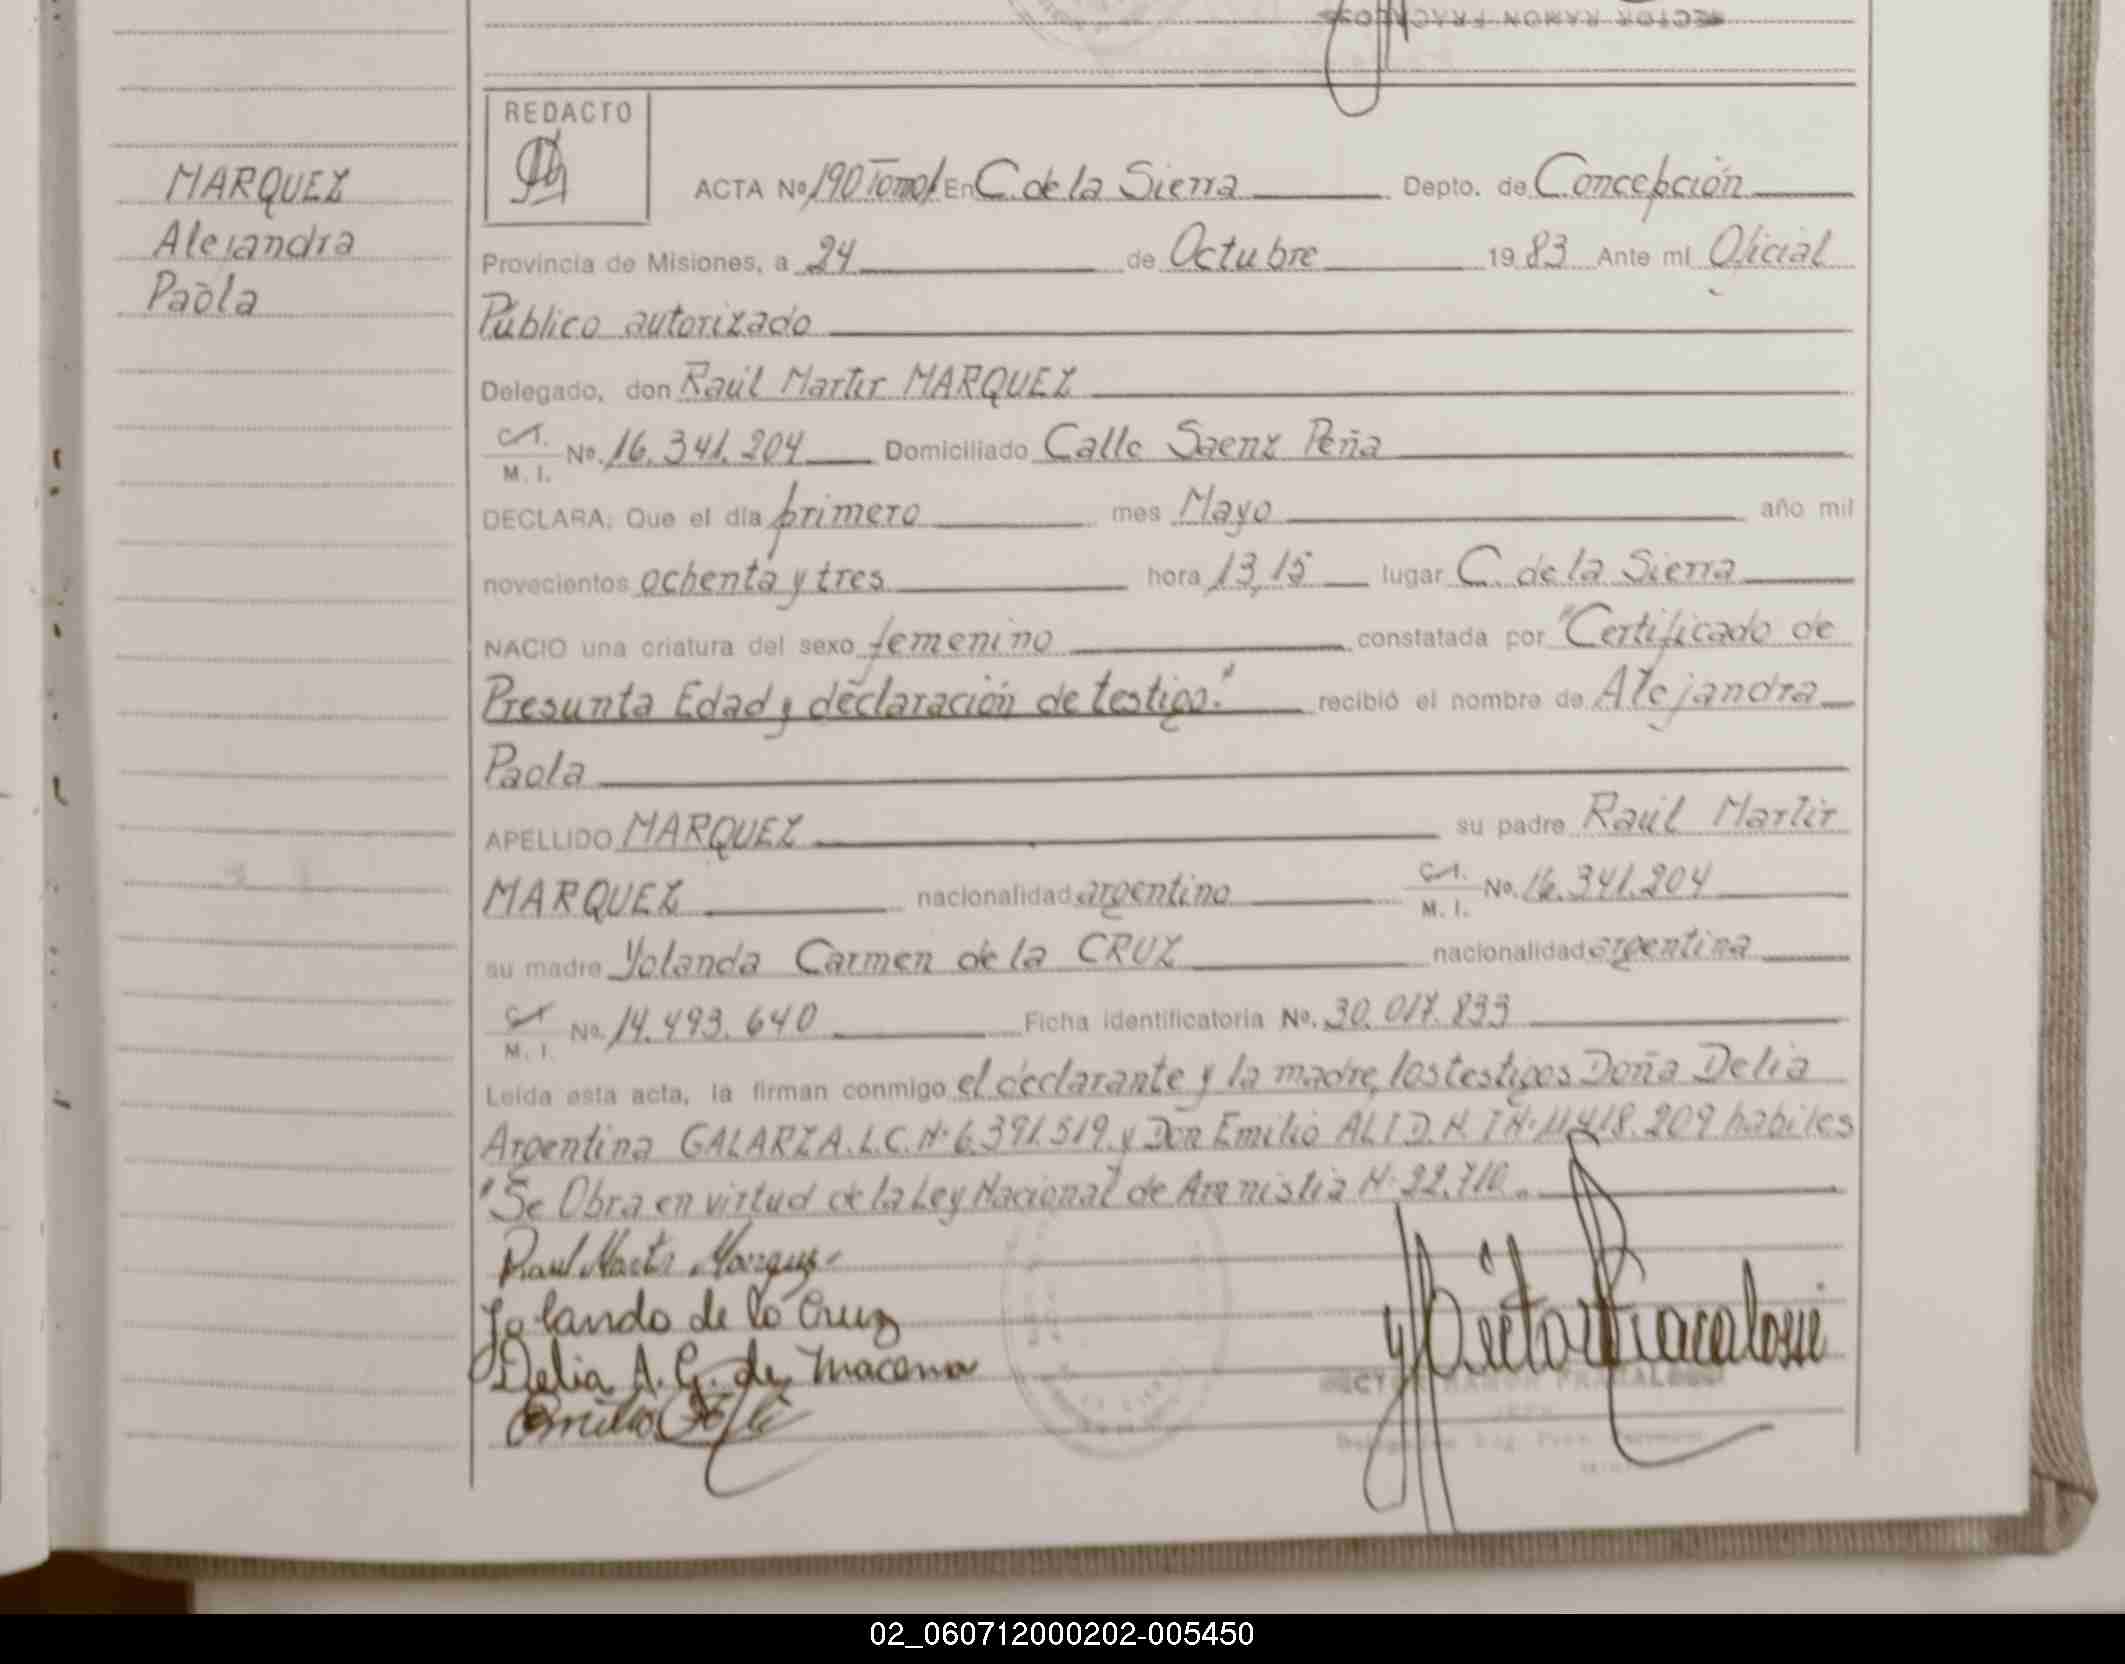 MARQUEZ
Alejandra
Paola
REDACTO
ACTA Nº 190 Tomo I En C. de la Sierra Depto. de Concepción
Provincia de Misiones, a 24 de Octubre 19 83 Ante mi Oficial
Público autorizado
Delegado, don Raúl Martir MARQUEZ
C.I.
M. I. Nº. 16.341.204 Domiciliado Calle Saenz Peña
DECLARA: Que el día primero mes Mayo año mil
novecientos ochenta y tres hora 13,15 lugar C. de la Sierra
NACIO una criatura del sexo femenino constatada por "Certificado de
Presunta Edad y declaración de testigo." recibió el nombre de Alejandra
Paola
APELLIDO MARQUEZ su padre Raúl Martir
MARQUEZ nacionalidad argentino C.I. M. I. Nº. 16.341.204
su madre Yolanda Carmen de la CRUZ nacionalidad argentina
C.I.
M. I. Nº. 14.493.640 Ficha identificatoria Nº. 30.017.833
Leída esta acta, la firman conmigo el declarante y la madre, los testigos Doña Delia
Argentina GALARZA. L.C. Nº 6.391.519. y Don Emilio ALI D.N.I Nº 11.418.209 habiles
"Se Obra en virtud de la Ley Nacional de Amnistia Nº 22.710.
Raul Martir Marquez
Yolanda de la Cruz
Delia A. G. de Macena
Emilio
Hector Fracalossi
HECTOR RAMON FRACALOSSI
JEFE
02_060712000202-005450